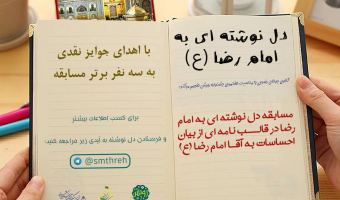 دل نوشته ای به
امام رضا (ع)
مسابقه دل نوشته ای به امام
رضا در قالب نامه ای از بیان
احساسات به آقا امام رضا (ع)
با اهدای جوایز نقدی
به سه نفر برتر مسابقه
برای کسب اطلاعات بیشتر
و فرستادن دل نوشته به آیدی زیر مراجعه کنید:
@smthreh